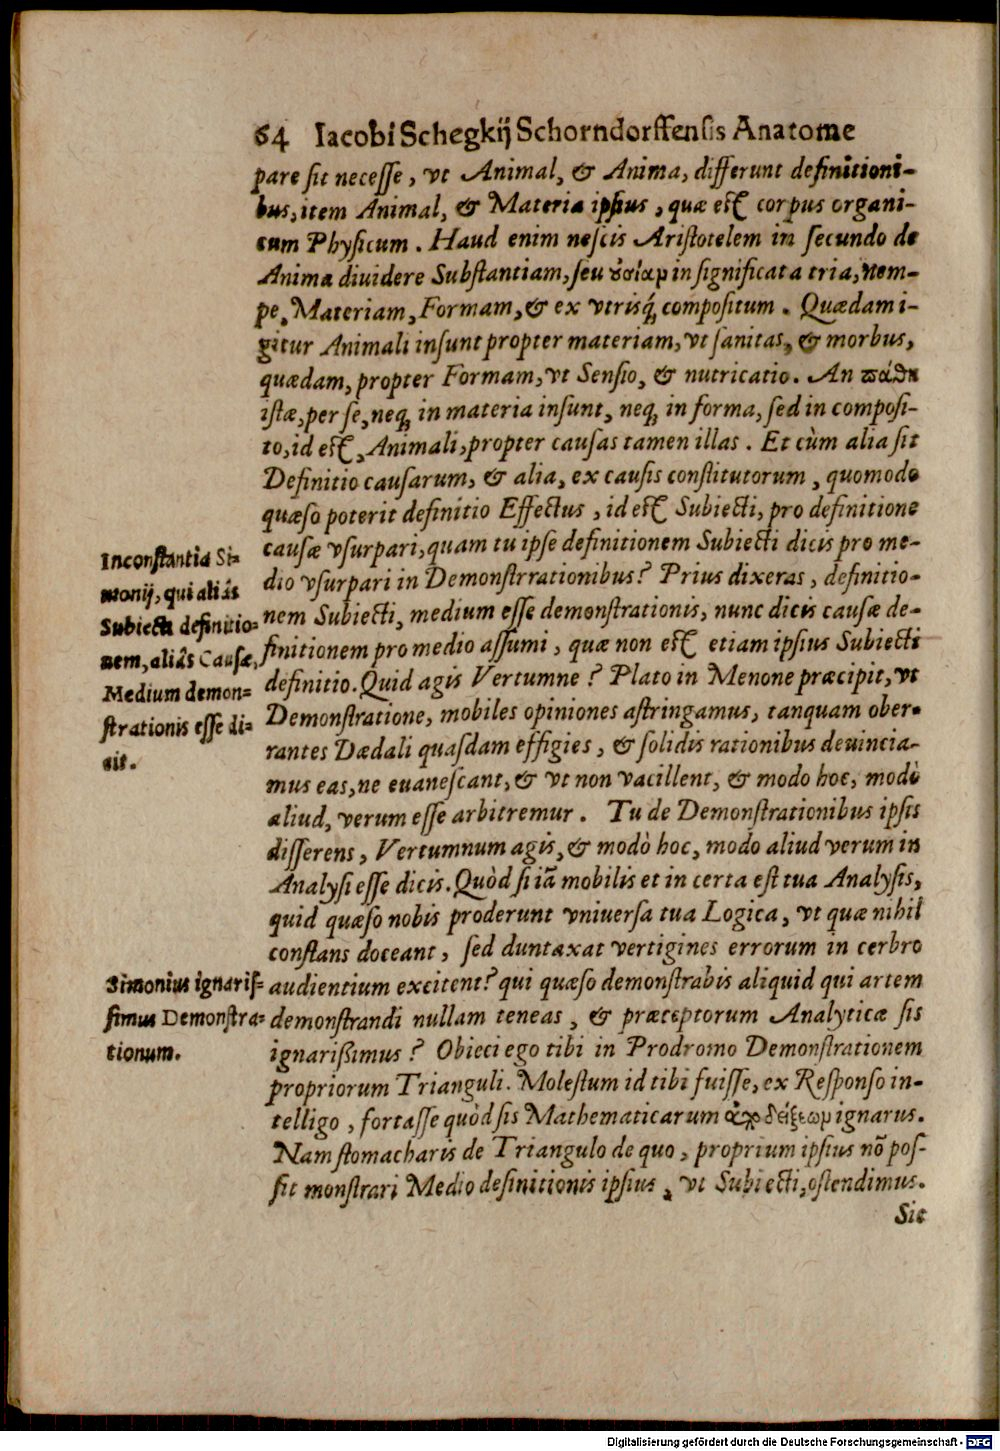 64 Iacobi Schegkij Schorndorffensis Anatome
pare sit necesse, vt Animal, & Anima, differunt definitioni-
bus, item Animal, & Materia ipsius, quæ est corpus organi-
cum Physicum. Haud enim nescis Aristotelem in secundo de
Anima diuidere Substantiam, seu οὐσίαμ in significata tria, nem-
pe, Materiam, Formam, & ex vtrisq́; compositum. Quædam i-
gitur Animali insunt propter materiam, vt sanitas, & morbus,
quædam, propter Formam, vt Sensio, & nutricatio. An πάθη
istæ, per se, neq; in materia insunt, neq; in forma, sed in composi-
to, id est, Animali, propter causas tamen illas. Et cùm alia sit
Definitio causarum, & alia, ex causis constitutorum, quomodo
quæso poterit definitio Effectus, id est Subiecti, pro definitione
causæ vsurpari, quam tu ipse definitionem Subiecti dicis pro me-
dio vsurpari in Demonstrrationibus? Prius dixeras, definitio-
nem Subiecti, medium esse demonstrationis, nunc dicis causæ de-
finitionem pro medio assumi, quæ non est etiam ipsius Subiecti
definitio. Quid agis Vertumne? Plato in Menone præcipit, vt
Demonstratione, mobiles opiniones astringamus, tanquam ober-
rantes Dædali quasdam effigies, & solidis rationibus deuincia-
mus eas, ne euanescant, & vt non vacillent, & modo hoc, modò
aliud, verum esse arbitremur. Tu de Demonstrationibus ipsis
disserens, Vertumnum agis, & modò hoc, modo aliud verum in
Analysi esse dicis. Quòd si iā mobilis et in certa est tua Analysis,
quid quæso nobis proderunt vniuersa tua Logica, vt quæ nihil
constans doceant, sed duntaxat vertigines errorum in cerbro
audientium excitent? qui quæso demonstrabis aliquid qui artem
demonstrandi nullam teneas, & præceptorum Analyticæ sis
ignarißimus? Obieci ego tibi in Prodromo Demonstrationem
propriorum Trianguli. Molestum id tibi fuisse, ex Responso in-
telligo, fortasse quòd sis Mathematicarum ἀποδείξεωμ ignarus.
Nam stomacharis de Triangulo de quo, proprium ipsius nō pos-
sit monstrari Medio definitionis ipsius, vt Subiecti, ostendimus.
Sic
Inconstantia Si-
monij, qui aliàs
Subiecti definitio-
nem, aliàs Causæ,
Medium demon-
strationis esse di-
cit.
Simonius ignaris-
simus Demonstra-
tionum.
Digitalisierung gefördert durch die Deutsche Forschungsgemeinschaft - DFG